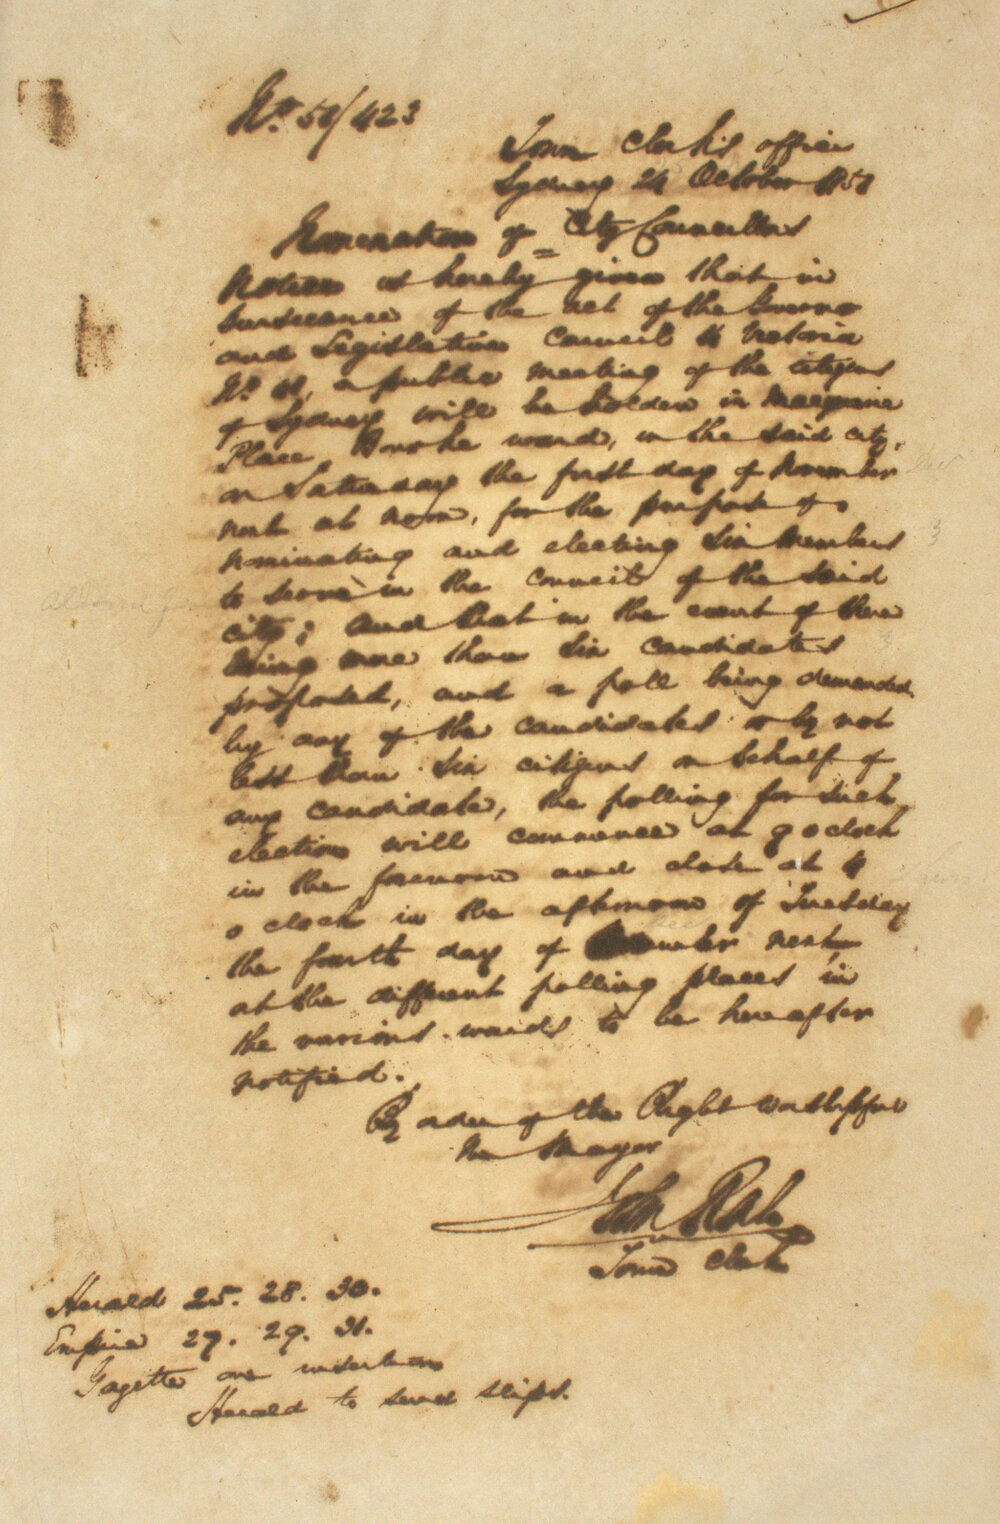 No. 51/423
Town Clerk's office
Sydney 24 October 1851
Nomination of City Councillors
Notice is hereby given that in
pursuance of the act of the Governor
and Legislative Council 14 Victoria
No. 41, a public meeting of the citizens
of Sydney will be holden in Macquarie
Place Bourke ward, in the said city,
on Saturday the first day of November
next at noon, for the purpose of
nominating and electing six Members
to serve in the Council of the said
city; and that in the event of there
being more than six candidates
proposed, and a poll being demanded
by any of the candidates or by not
less than six citizens on behalf of
any candidate, the polling for such
election will commence at 9 o clock
in the forenoon and close at 4
o clock in the afternoon of Tuesday
the fourth day of November next,
at the different polling places in
the various wards to be hereafter
notified.
By order of the Right Worshipful
the Mayor
John Rae
Town Clerk
Herald 25. 28. 30.
Empire 27. 29. 31.
Gazette one insertion
Herald to send slips.